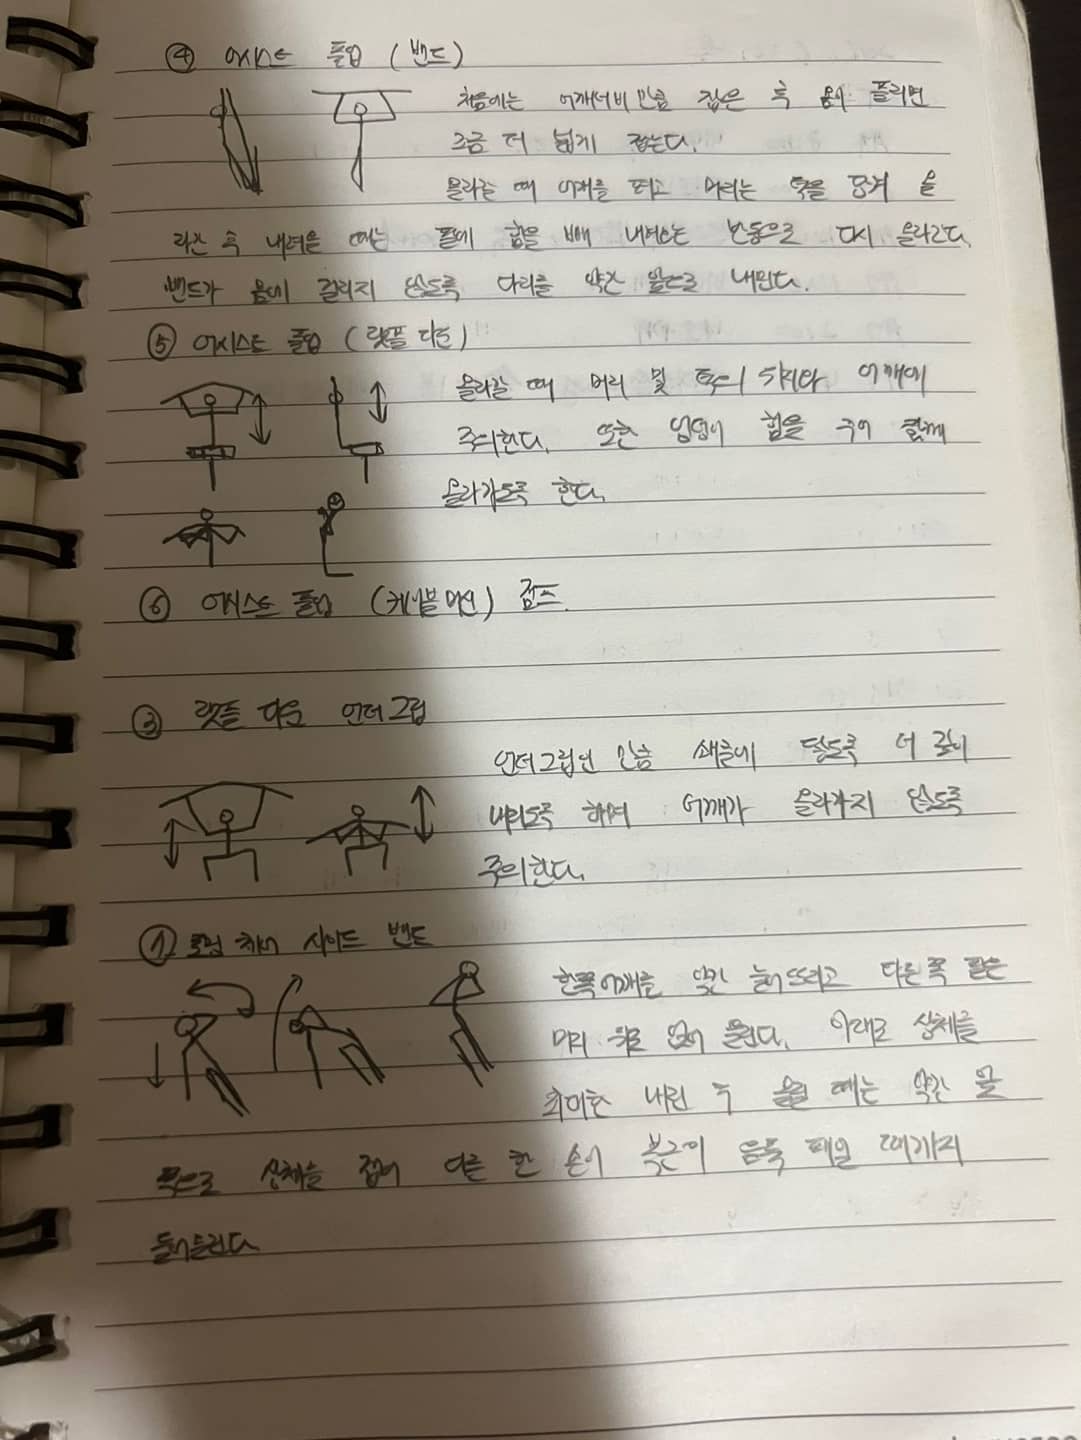 ④ 어시스트 풀업 (밴드)
처음에는 어깨너비 만큼 잡은 후 몸이 풀리면
조금 더 넓게 잡는다.
올라갈 때 어깨를 펴고 머리는 턱을 당겨 올
라간 후 내려올 때는 팔에 힘을 빼 내려오는 반동으로 다시 올라간다.
밴드가 몸에 걸리지 않도록 다리를 약간 앞으로 내민다.
⑤ 어시스트 풀업 (랫풀 다운)
올라갈 때 머리 및 턱의 위치와 어깨에
주의한다. 또한 엉덩이 힘을 주어 함께
올라가도록 한다.
⑥ 어시스트 풀업 (케이블 머신) 점프.
③ 랫풀 다운 언더그립
언더그립인 만큼 쇄골에 닿도록 더 깊이
내리도록 하며 어깨가 올라가지 않도록
주의한다.
① 로만 체어 사이드 밴드
한쪽 어깨를 약간 늘어뜨리고 다른쪽 팔은
머리 뒤로 얹어 올린다. 아래로 상체를
최대한 내린 후 올릴 때는 약간 몸
쪽으로 상체를 접어 다른 한 손이 복근이 움푹 패일 때까지
들어올린다